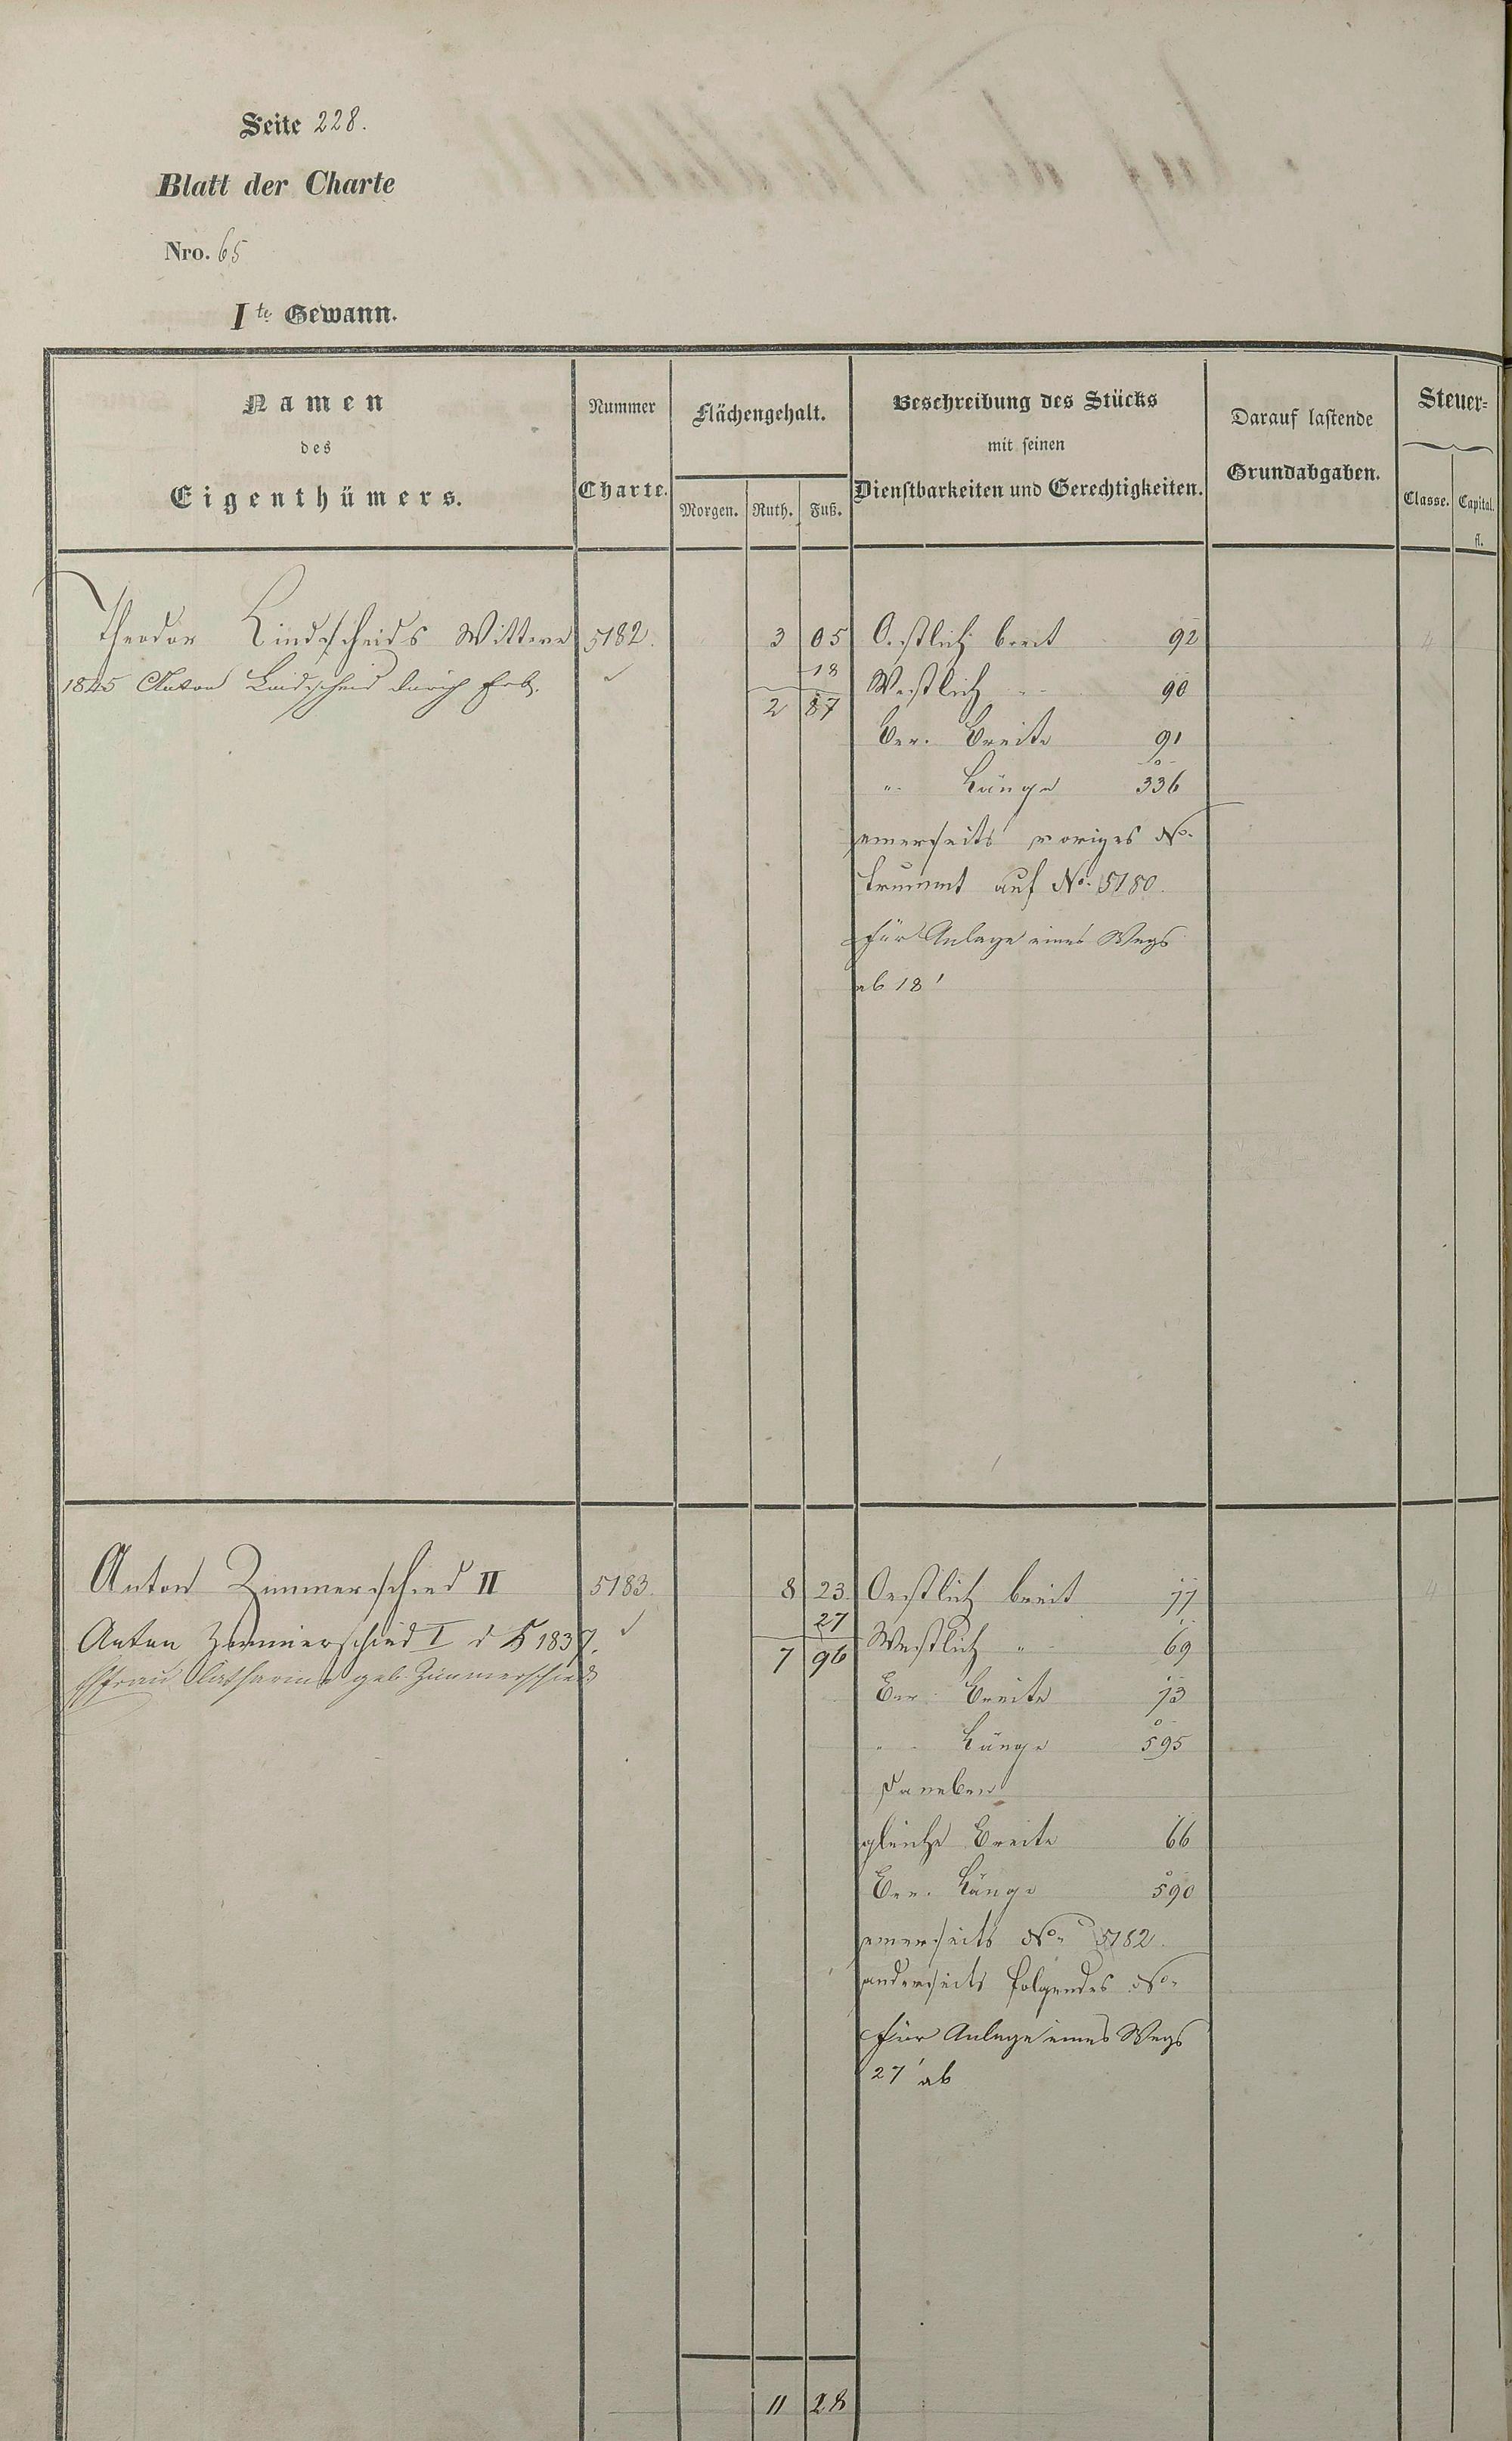 Seite 228.
Blatt der Charte
Nro. 65
Ite Gewann.
Namen
des
Eigenthümers.
Nummer
Charte.
Flächengehalt.
Morgen. Ruth. Fuß.
Beschreibung des Stücks
mit seinen
Dienstbarkeiten und Gerechtigkeiten.
Darauf lastende
Grundabgaben.
Steuer=
Classe. Capital.
fl.
Theodor Lindscheids Wittwe 5182. 3 05 Oestlich breit 92 4
1845 Anton Lindscheid durch Erb. 18 Westlich " 90
2 87
Ver. Breite 91
" Länge 336
einerseits voriges No.
trummt auf No. 5180.
für Anlage eines Wegs
ab 18'
Anton Zimmerschied II 5183. 8 23. Oestlich breit 77 4
Anton Zimmerschied I d K 1837. 27 Westlich " 69
Ehfrau Catharina geb. Zimmerschied 7 96
Ver. Breite 73
" Länge 595
Daneben
gleiche Breite 66
Ver. Länge 590
einerseits No. 5182.
anderseits folgendes No.
für Anlage eines Wegs
27' ab
11 28